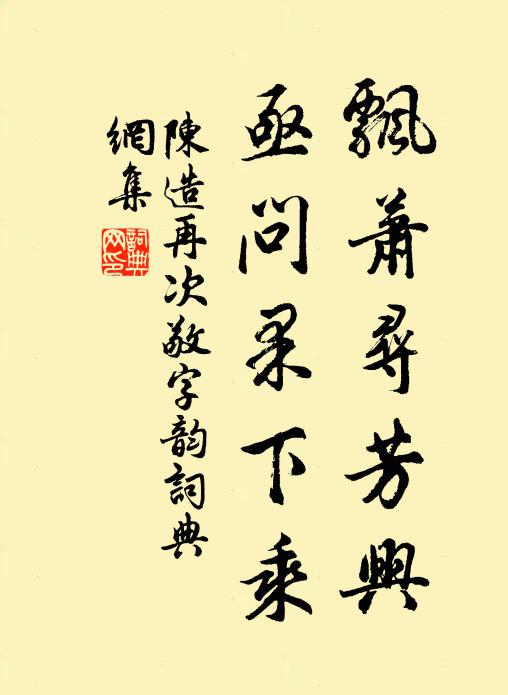 飄蕭尋芳興
亟問果下乘
陳造再次敬字韵詞典
網集
詞典
網印